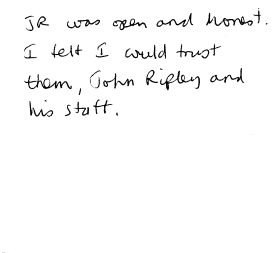 JR was open and honest.
I felt I could trust
them, John Ripley and
his staff.